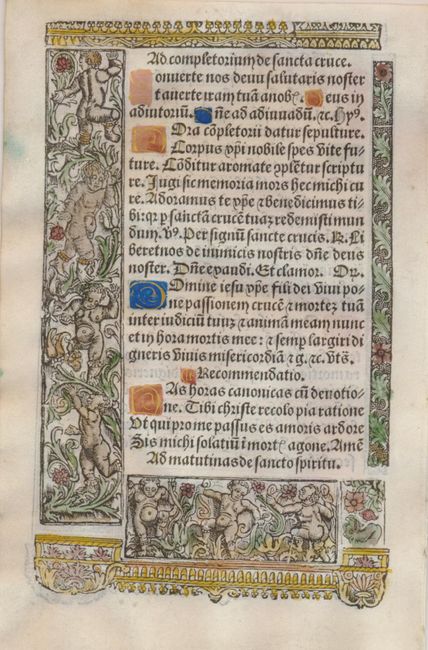 Ad completorium de sancta cruce.
onuerte nos deuu salutaris noster
t auerte iram tuā a nob. eus in
adiutoriū. ñe ad adiuuādū. ⁊c. Hy⁹.
Ora cōpletorii datur sepulture.
Corpus xp̄i nobile spes vite fu-
ture. Cōditur aromate ꝯpletur scriptu
re. Jugi sic memoria mors hec michi cu
re. Adoramus te xp̄e ⁊ benedicimus ti-
bi. qꝛ p sanctam crucē tuaꝫ redemisti mun
dum. V⁹. Per signū sancte crucis. R. Li
beret nos de inimicis nostris dñe deus
noster. Dñe exaudi. Et clamor. Or.
Omine iesu xp̄e fili dei viui po-
ne passionem crucē ⁊ morteꝫ tuā
inter iudiciū tuūꝫ ⁊ animā meam nunc
et in hora mortis mee: ⁊ semp largiri di
gneris viuis misericordiā ⁊ g. ⁊c. vt s.
Recommendatio.
As horas canonicas cū deuotio-
ne. Tibi christe recolo pia ratione
Vt qui pro me passus es amoris ardore
Sis michi solatiū ī mort agone. Amē
Ad matutinas de sancto spiritu.